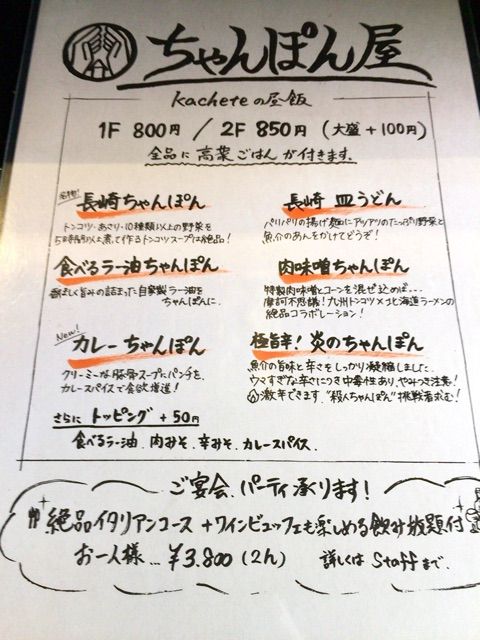 ちゃんぽん屋
kacheteの昼飯
1F 800円 / 2F 850円 (大盛+100円)
全品に高菜ごはんが付きます。
名物! 長崎ちゃんぽん
トンコツ・あさり・10種類以上の野菜を
5時間以上煮て作るトンコツスープは絶品!
長崎 皿うどん
パリパリの揚げ麺にアツアツのたっぷり野菜と
魚介のあんをかけてどうぞ!
食べるラー油ちゃんぽん
香ばしく旨みの詰まった自家製ラー油を
ちゃんぽんに。
肉味噌ちゃんぽん
特製肉味噌とコーンを混ぜ込めば…
摩訶不思議!九州トンコツ×北海道ラーメンの
絶品コラボレーション!
New! カレーちゃんぽん
クリーミーな豚骨スープにパンチを、
カレースパイスで食欲増進!
極旨辛! 炎のちゃんぽん
魚介の旨味と辛さをしっかり凝縮しました。
ウマすぎな辛さにつき中毒性あり、やみつき注意!
激辛できます。"殺人ちゃんぽん"挑戦者求む!
さらに トッピング +50円
食べるラー油、肉みそ、辛みそ、カレースパイス、
ご宴会、パーティ承ります!
絶品イタリアンコース+ワインビュッフェも楽しめる飲み放題付
お一人様…¥3,800(2h) 詳しくは Staffまで。